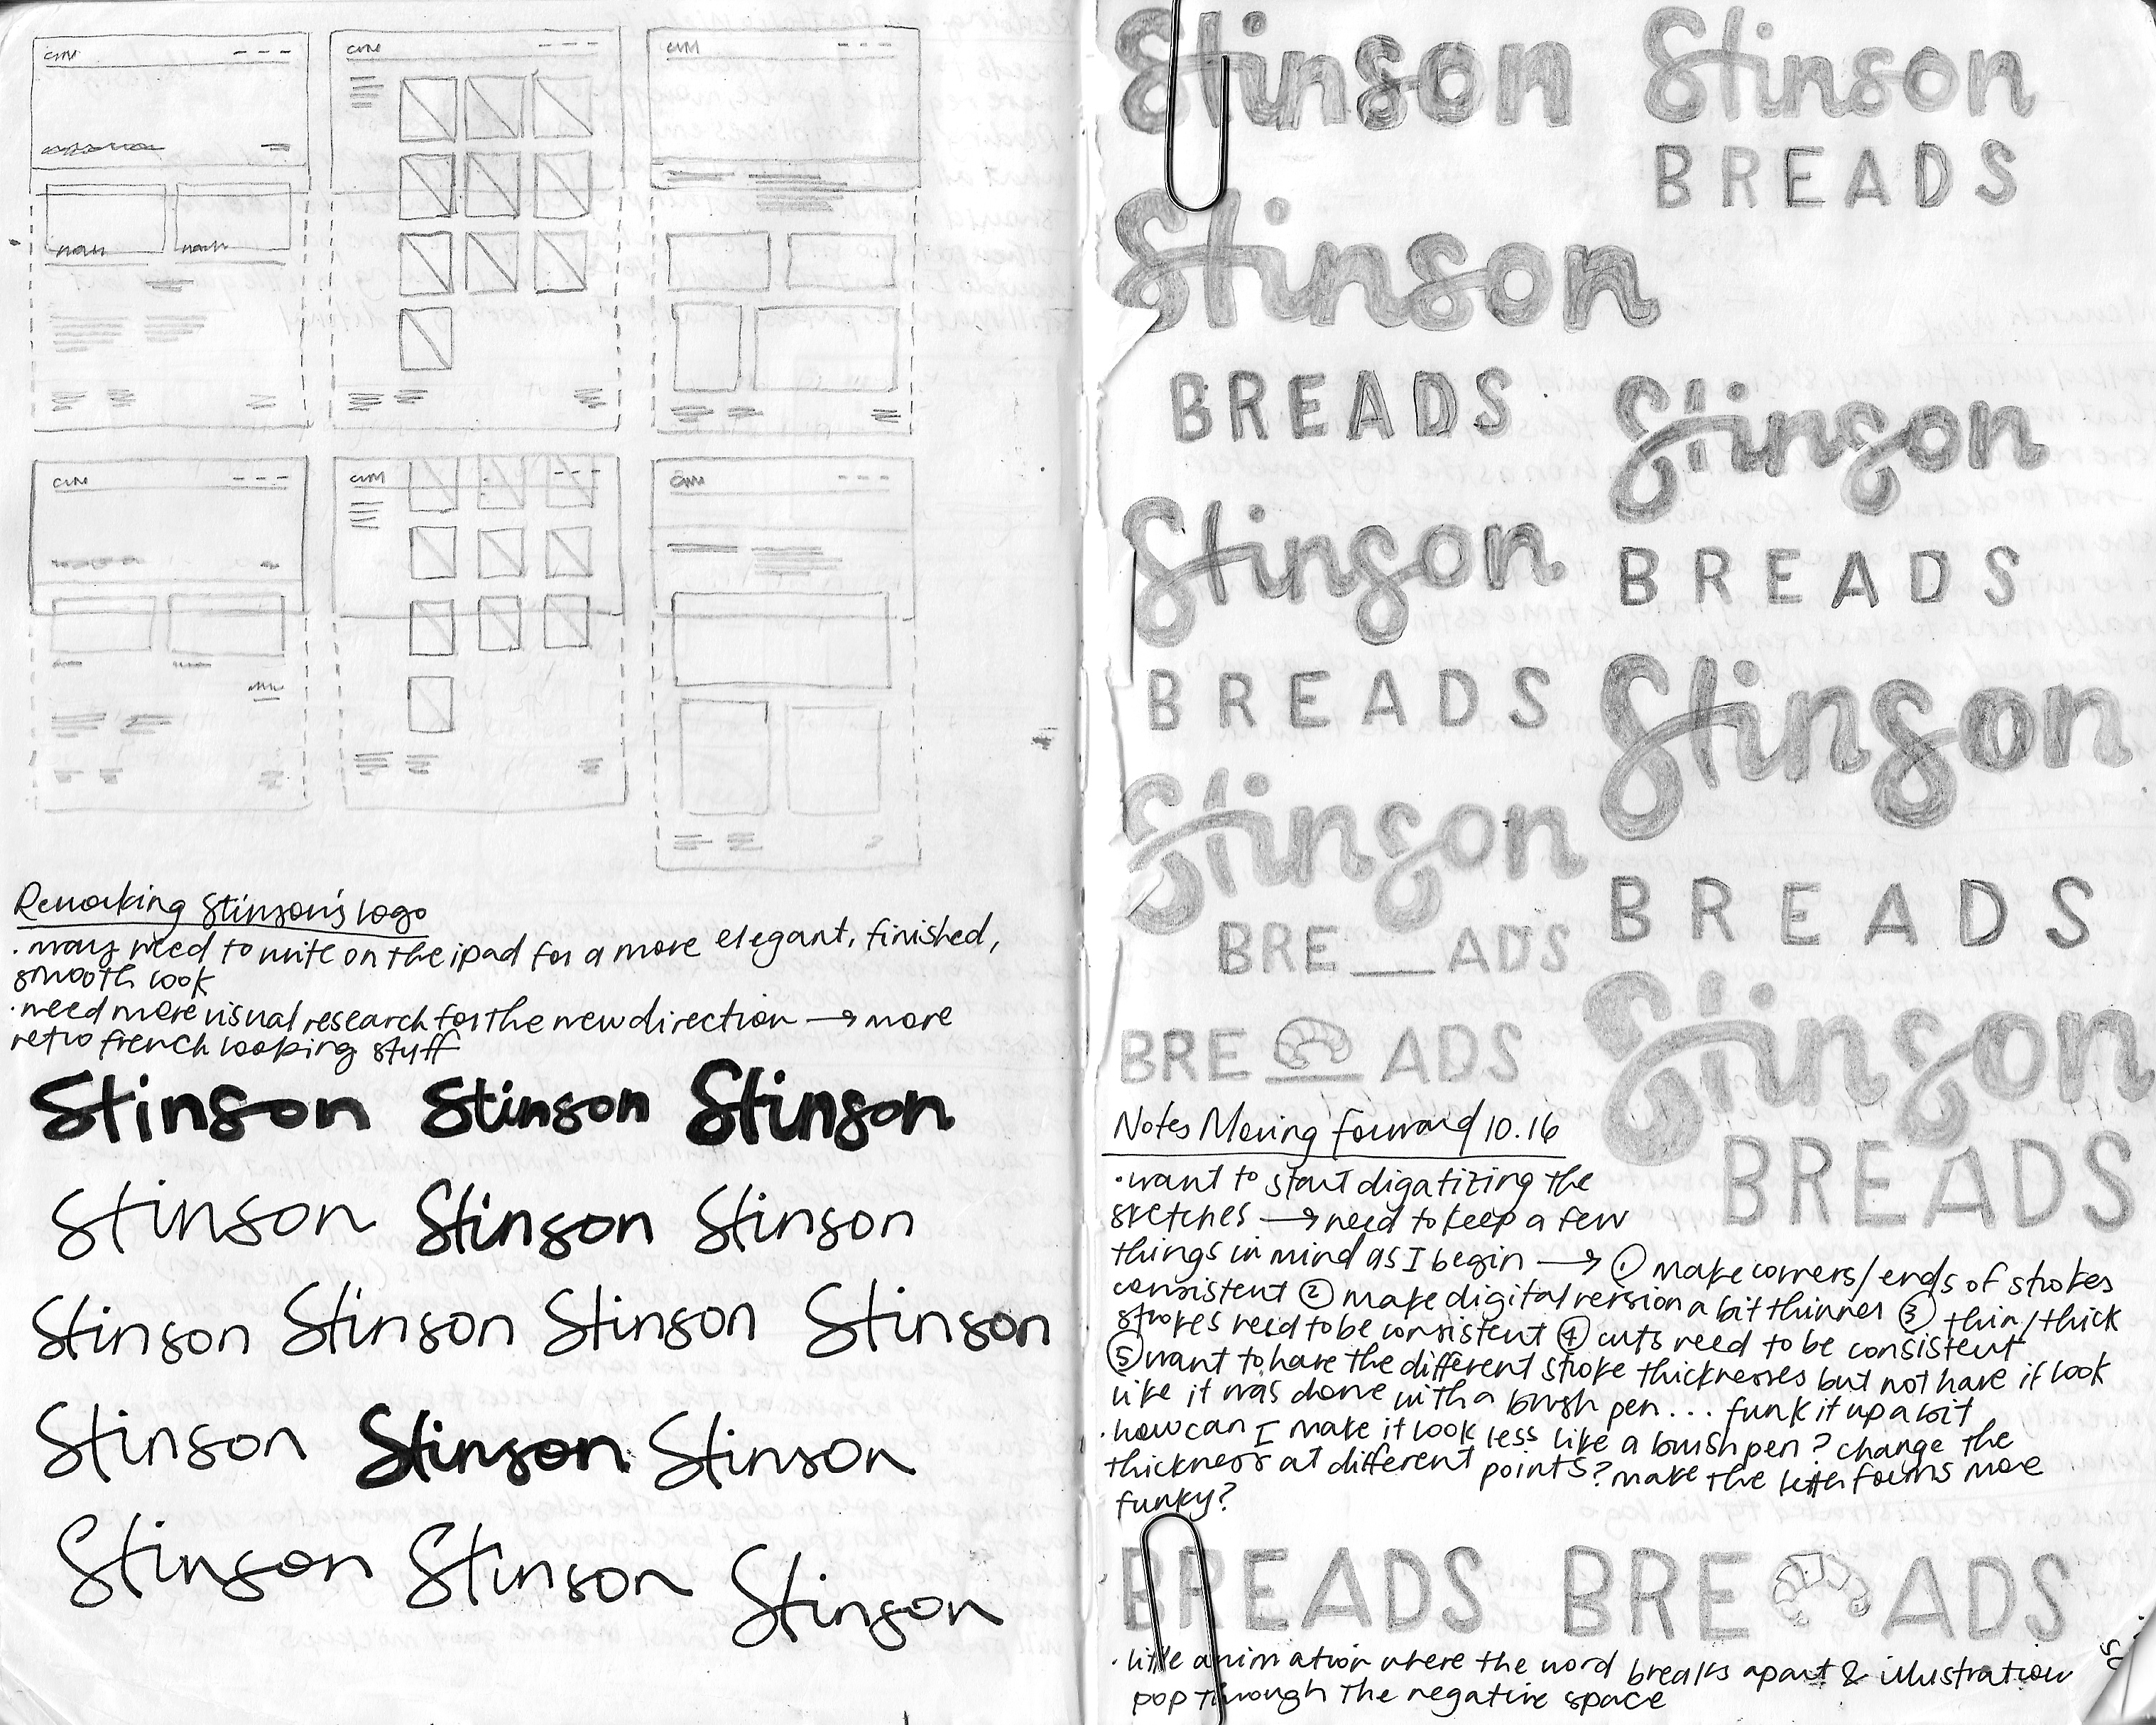 Reworking Stinson's logo
· may need to write on the ipad for a more elegant, finished,
smooth look
· need more visual research for the new direction → more
retro french looking stuff
Stinson Stinson Stinson
Stinson Stinson Stinson
Stinson Stinson Stinson Stinson
Stinson Stinson Stinson
Stinson Stinson Stinson
Stinson Stinson
BREADS
Stinson
BREADS
Stinson
BREADS
Stinson
BREADS
Stinson
BREADS
Stinson
BRE__ADS
Stinson
BREADS
BRE ADS
Notes Moving Forward 10.16
· want to start digatizing the
sketches → need to keep a few
things in mind as I begin → ① make corners/ends of strokes
consistent ② make digital version a bit thinner ③ thin/thick
strokes need to be consistent ④ cuts need to be consistent
⑤ want to have the different stroke thicknesses but not have it look
like it was done with a brush pen... funk it up a bit
· how can I make it look less like a brush pen? change the
thickness at different points? make the letter forms more
funky?
BREADS BRE ADS
· little animation where the word breaks apart & illustration
pop through the negative space